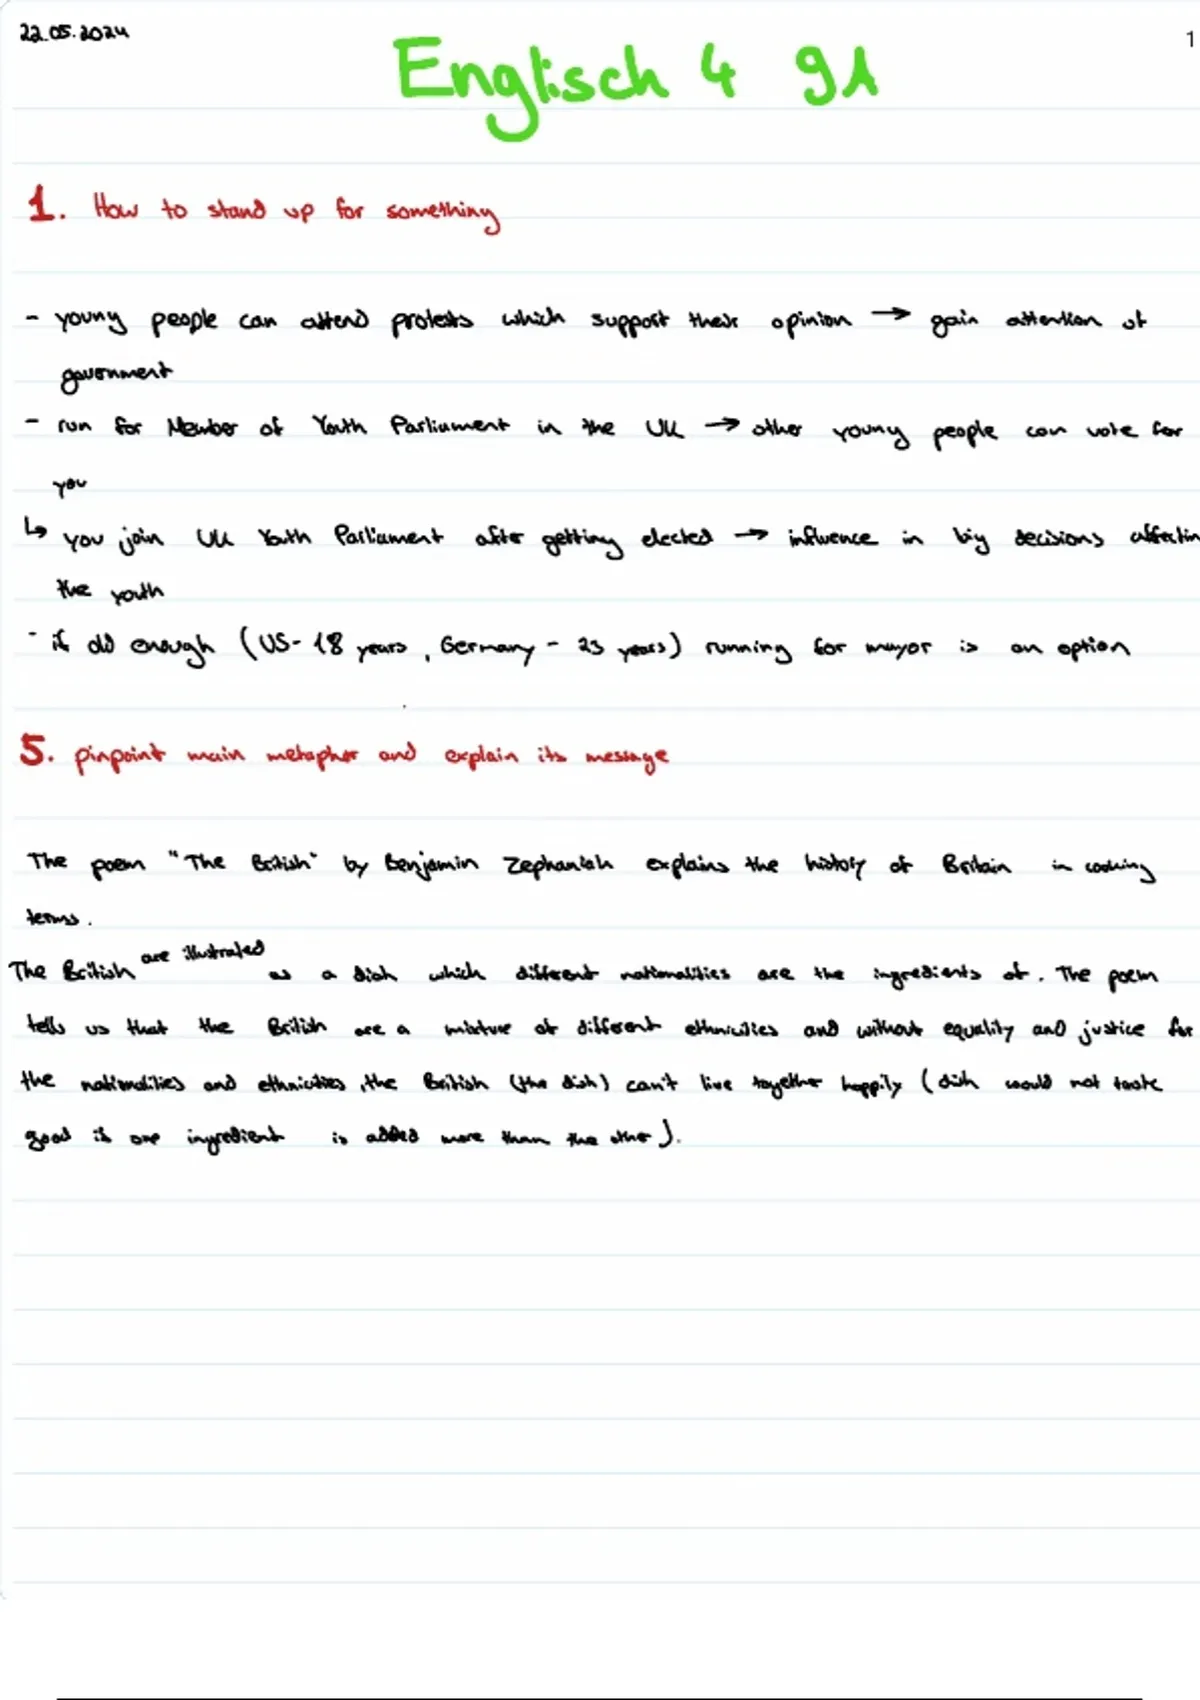 22.05.2024
1
Englisch 4 9A
1. How to stand up for something
- young people can attend protests which support their opinion → gain attention of
government
- run for Member of Youth Parliament in the UK → other young people can vote for
you
↳ you join UK Youth Parliament after getting elected → influence in big decisions affectin
the youth
- if old enough (US- 18 years, Germany - 23 years) running for mayor is an option
5. pinpoint main metaphor and explain its message
The poem "The British" by Benjamin Zephaniah explains the history of Britain in cooking
terms.
The British are illustrated as a dish which different nationalities are the ingredients of. The poem
tells us that the British are a mixture of different ethnicities and without equality and justice for
the nationalities and ethnicities, the British (the dish) can't live together happily (dish would not taste
good if one ingredient is added more than the other).